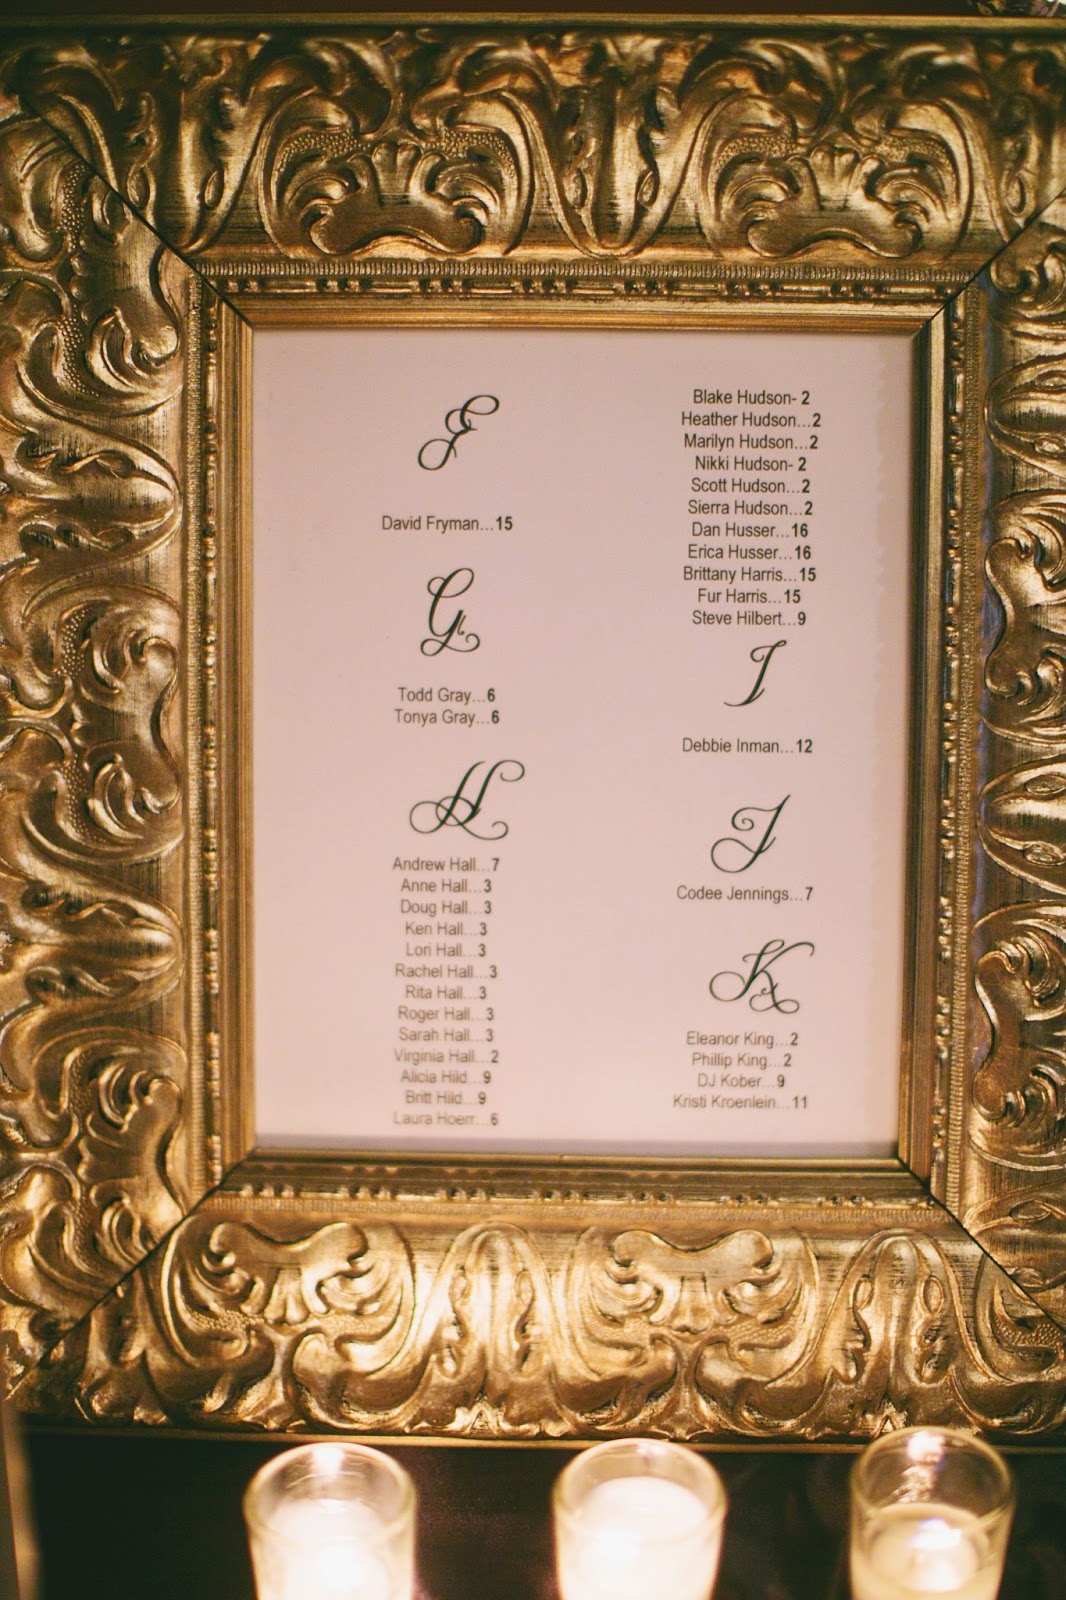 F
David Fryman...15
G
Todd Gray...6
Tonya Gray...6
H
Andrew Hall...7
Anne Hall...3
Doug Hall...3
Ken Hall...3
Lori Hall...3
Rachel Hall...3
Rita Hall...3
Roger Hall...3
Sarah Hall...3
Virginia Hall...2
Alicia Hild...9
Britt Hild...9
Laura Hoerr...6
Blake Hudson- 2
Heather Hudson...2
Marilyn Hudson...2
Nikki Hudson- 2
Scott Hudson...2
Sierra Hudson...2
Dan Husser...16
Erica Husser...16
Brittany Harris...15
Fur Harris...15
Steve Hilbert...9
I
Debbie Inman...12
J
Codee Jennings...7
K
Eleanor King...2
Phillip King...2
DJ Kober...9
Kristi Kroenlein...11